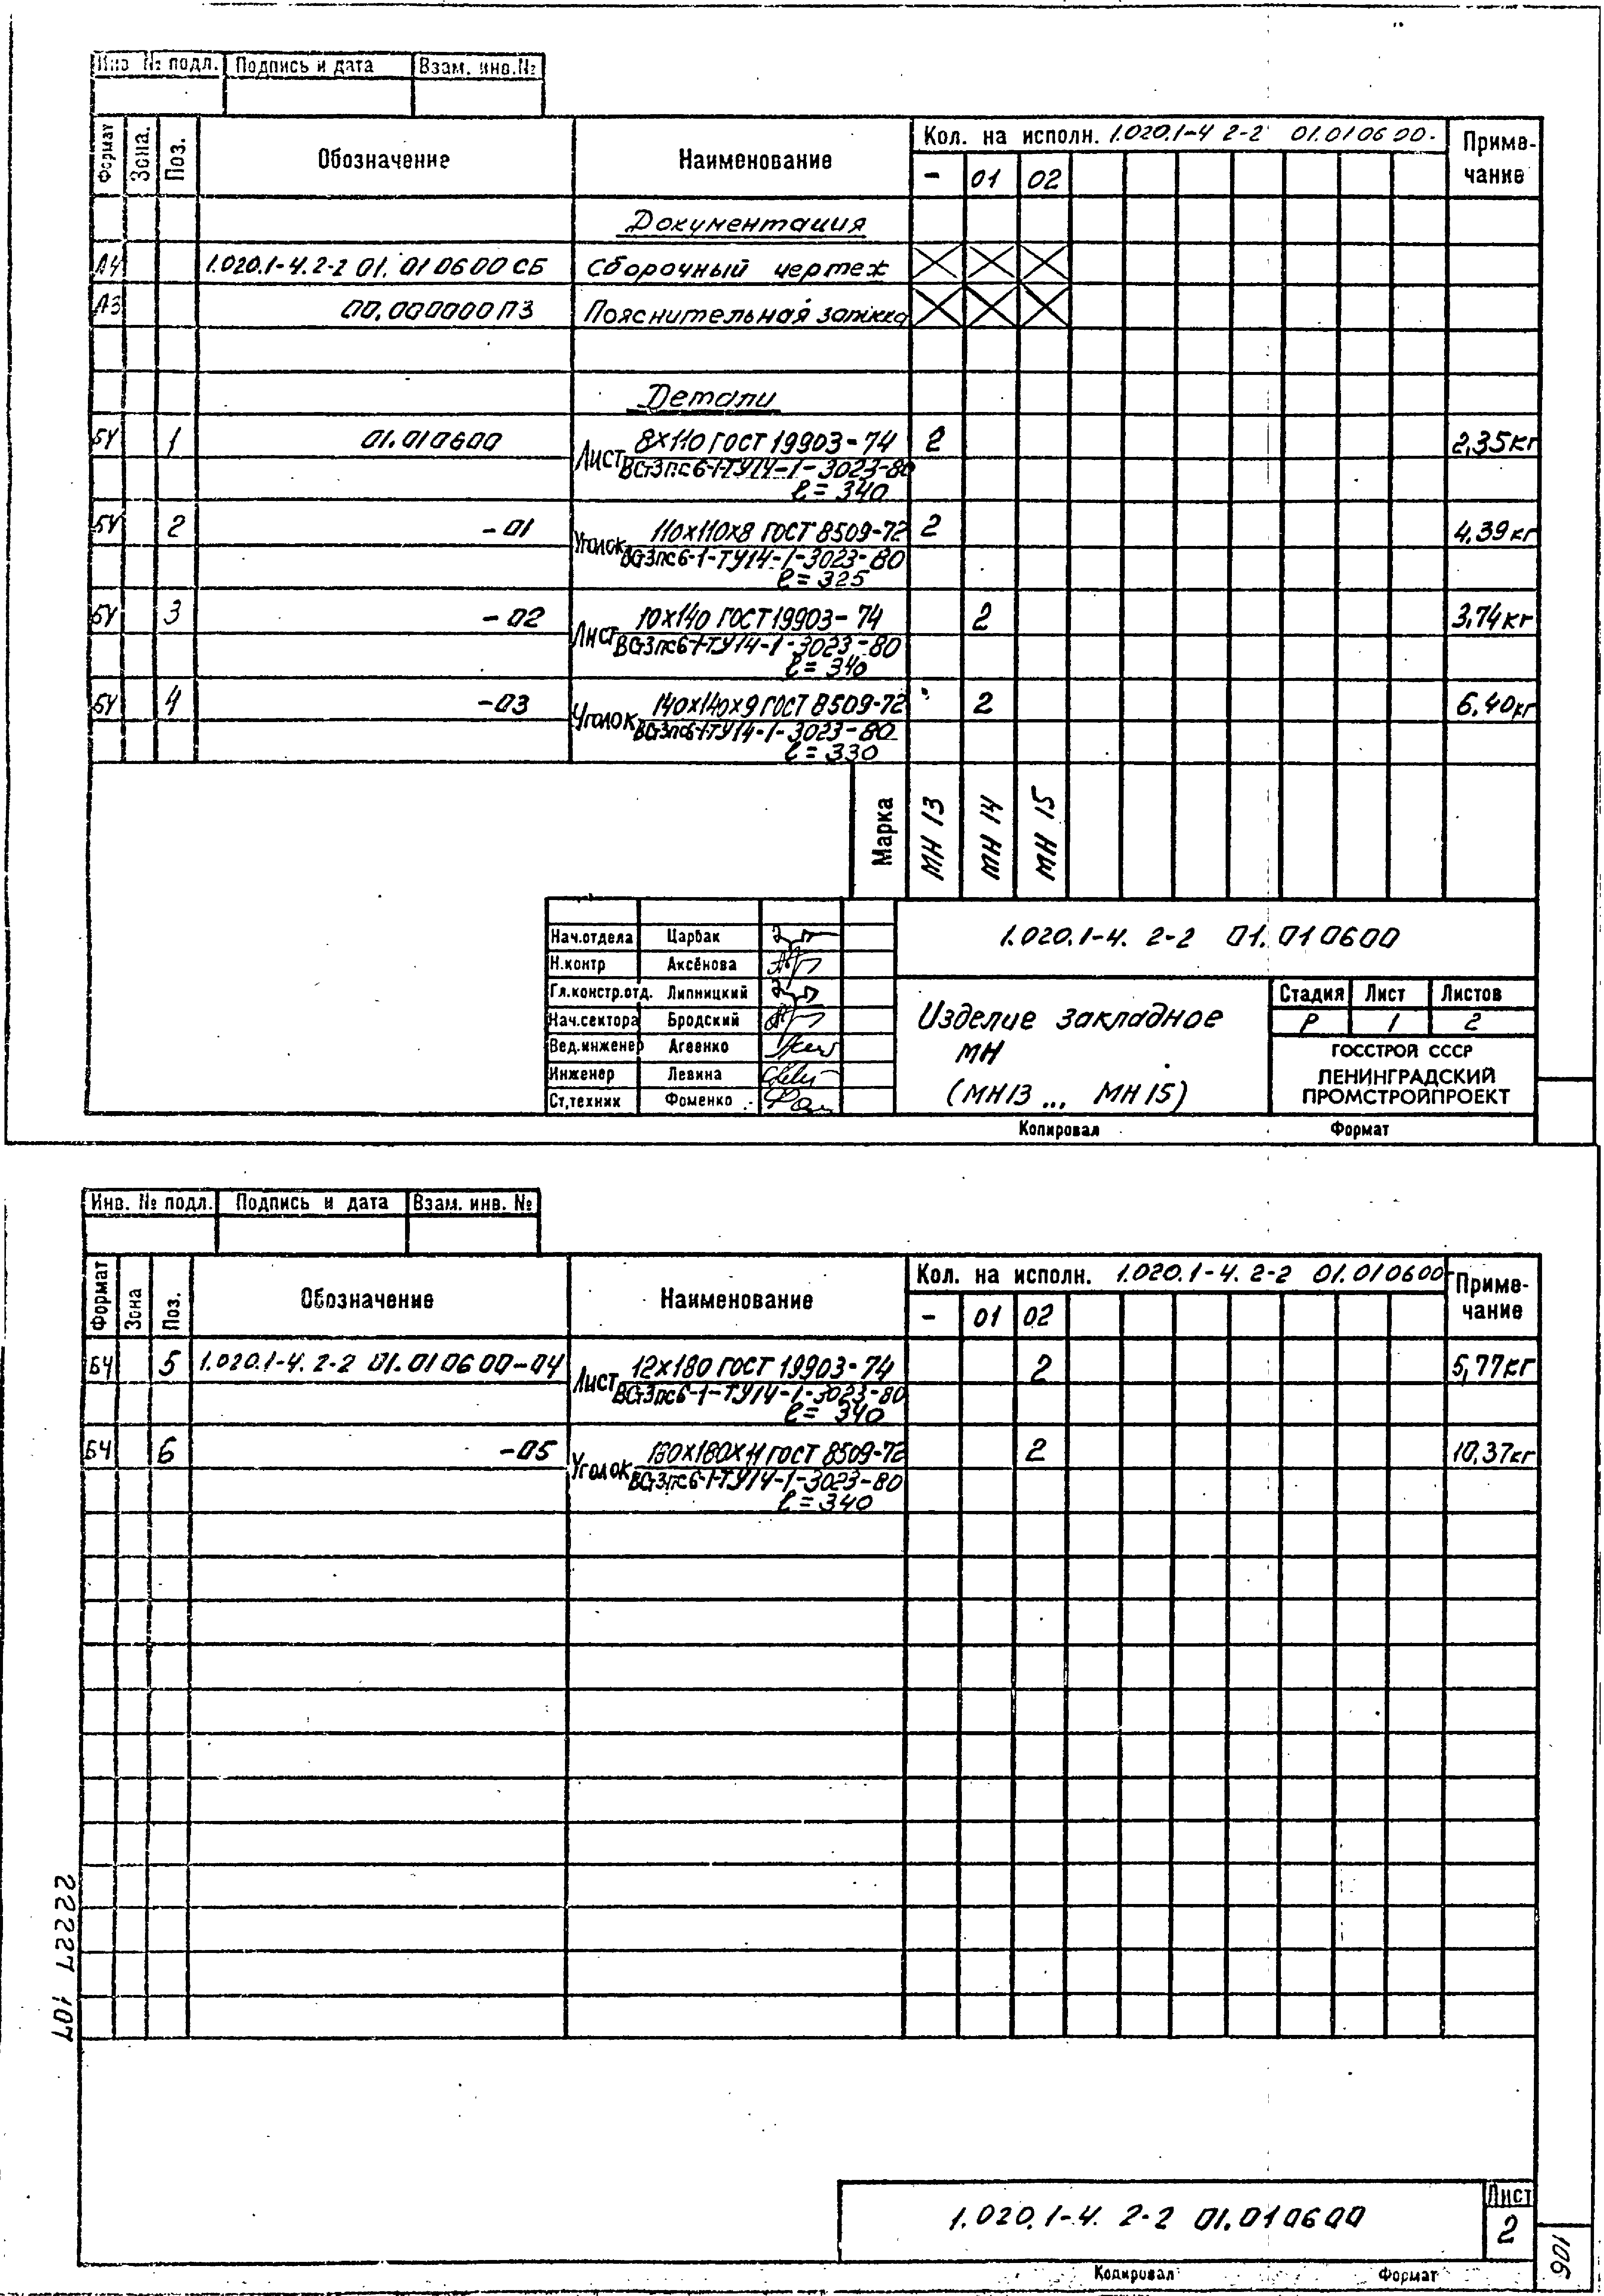 Инв № подл. Подпись и дата Взам. инв.№
Формат Зона. Поз. Обозначение Наименование Кол. на исполн. 1.020.1-4 2-2 01.010600- Приме-
чание
- 01 02
Документация
А4 1.020.1-4.2-2 01.010600 СБ Сборочный чертеж
А3 00.000000ПЗ Пояснительная записка
Детали
БЧ 1 01.010600 Лист 8х110 ГОСТ 19903-74 2 2,35кг
ВСт3пс6-1-ТУ14-1-3023-80
ℓ=340
БЧ 2 -01 Уголок 110х110х8 ГОСТ 8509-72 2 4,39кг
ВСт3пс6-1-ТУ14-1-3023-80
ℓ=325
БЧ 3 -02 Лист 10х140 ГОСТ 19903-74 2 3,74кг
ВСт3пс6-1-ТУ14-1-3023-80
ℓ=340
БЧ 4 -03 Уголок 140х140х9 ГОСТ 8509-72 2 6,40кг
ВСт3пс6-1-ТУ14-1-3023-80
ℓ=330
Марка МН 13 МН 14 МН 15
Нач.отдела Царбак
Н.контр Аксёнова
Гл.констр.отд. Липницкий
Нач.сектора Бродский
Вед.инженер Агеенко
Инженер Левина
Ст.техник Фоменко
1.020.1-4. 2-2 01.010600
Изделие закладное
МН
(МН13 ... МН15)
Стадия Лист Листов
Р 1 2
ГОССТРОЙ СССР
ЛЕНИНГРАДСКИЙ
ПРОМСТРОЙПРОЕКТ
Копировал Формат
Инв. № подл. Подпись и дата Взам. инв. №
Формат Зона Поз. Обозначение Наименование Кол. на исполн. 1.020.1-4. 2-2 01.010600- Приме-
чание
- 01 02
БЧ 5 1.020.1-4. 2-2 01.010600-04 Лист 12х180 ГОСТ 19903-74 2 5,77кг
ВСт3пс6-1-ТУ14-1-3023-80
ℓ=340
БЧ 6 -05 Уголок 180х180х11 ГОСТ 8509-72 2 10,37кг
ВСт3пс6-1-ТУ14-1-3023-80
ℓ=340
22227 107
1.020.1-4. 2-2 01.010600
Лист
2
Копировал Формат
106